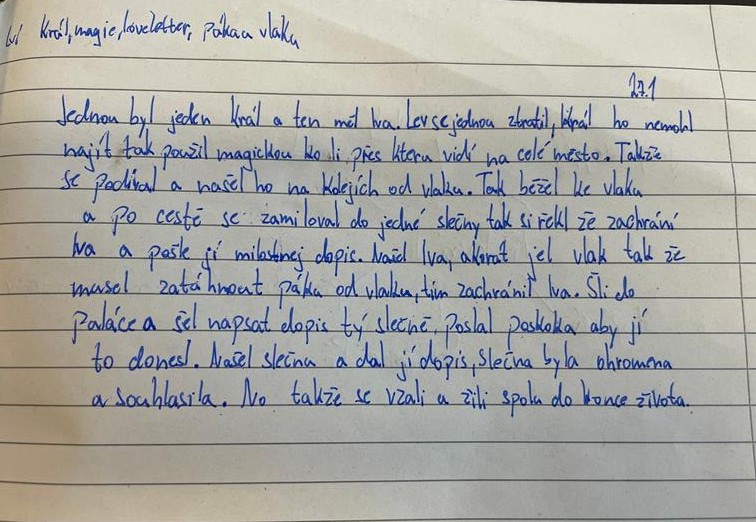 lví král, magie, loveletter, páka u vlaku
27.1
Jednou byl jeden král a ten měl lva. Lev se jednou ztratil, král ho nemohl
najít tak použil magickou kouli přes kteru vidí na celé město. Takže
se podíval a našel ho na kolejích od vlaku. Tak běžel ke vlaku
a po cestě se zamiloval do jedné slečny tak si řekl že zachrání
lva a pošle jí milostnej dopis. Našel lva, akorát jel vlak tak že
musel zatáhnout páku od vlaku, tím zachránil lva. Šli do
paláce a šel napsat dopis tý slečně. Poslal poskoka aby jí
to donesl. Našel slečnu a dal jí dopis, slečna byla ohromena
a souhlasila. No takže se vzali a žili spolu do konce života.